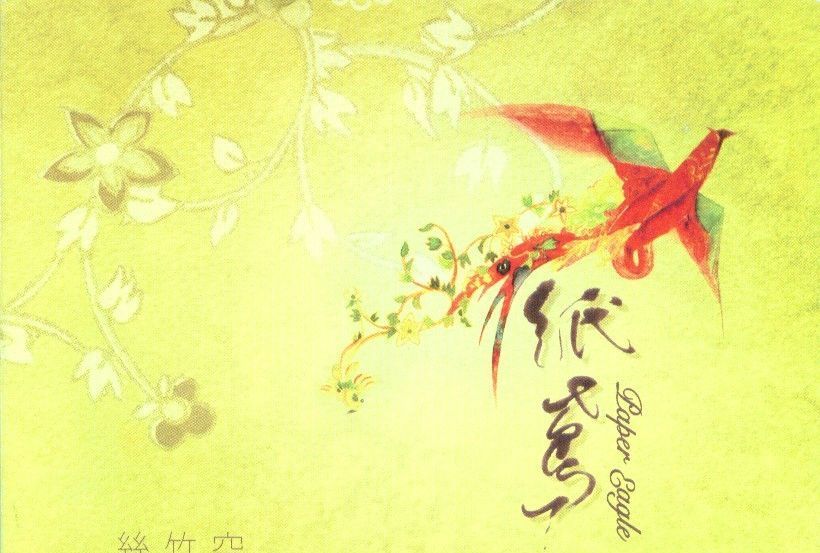 紙鳶
Paper Eagle
絲竹空